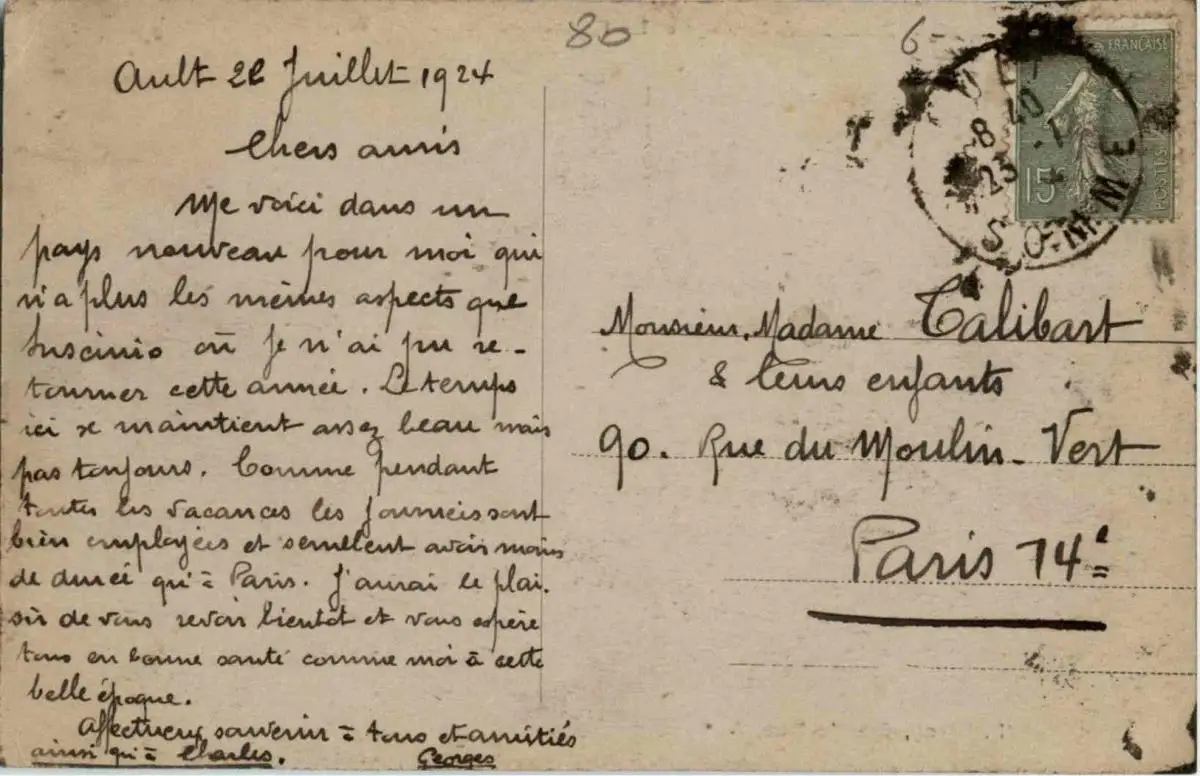 80
6-
Ault 22 Juillet 1924
Chers amis
Me voici dans un
pays nouveau pour moi qui
n'a plus les mêmes aspects que
Suscinio où je n'ai pu re-
tourner cette année. Le temps
ici se maintient assez beau mais
pas toujours. Comme pendant
toutes les vacances les journées sont
bien employées et semblent avoir moins
de durée qu'à Paris. J'aurai le plai-
sir de vous revoir bientôt et vous espère
tous en bonne santé comme moi à cette
belle époque.
Affectueux souvenir à tous et amitiés
ainsi qu'à Charles. Georges
FRANÇAISE
POSTES
15
8 40
23
SOMME
Monsieur, Madame Talibart
& leurs enfants
90. Rue du Moulin-Vert
Paris 14e